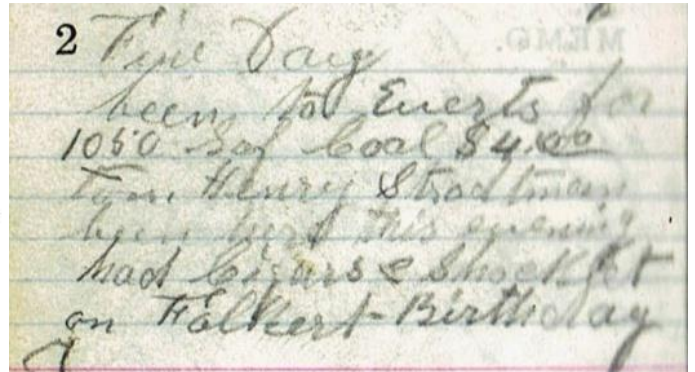 2 Fine Day
been to Everts for
1050 lb of Coal $4.00
Henry Strodtman
been here this evening
had Cigars &
on Folkert Birthday
MEMO.